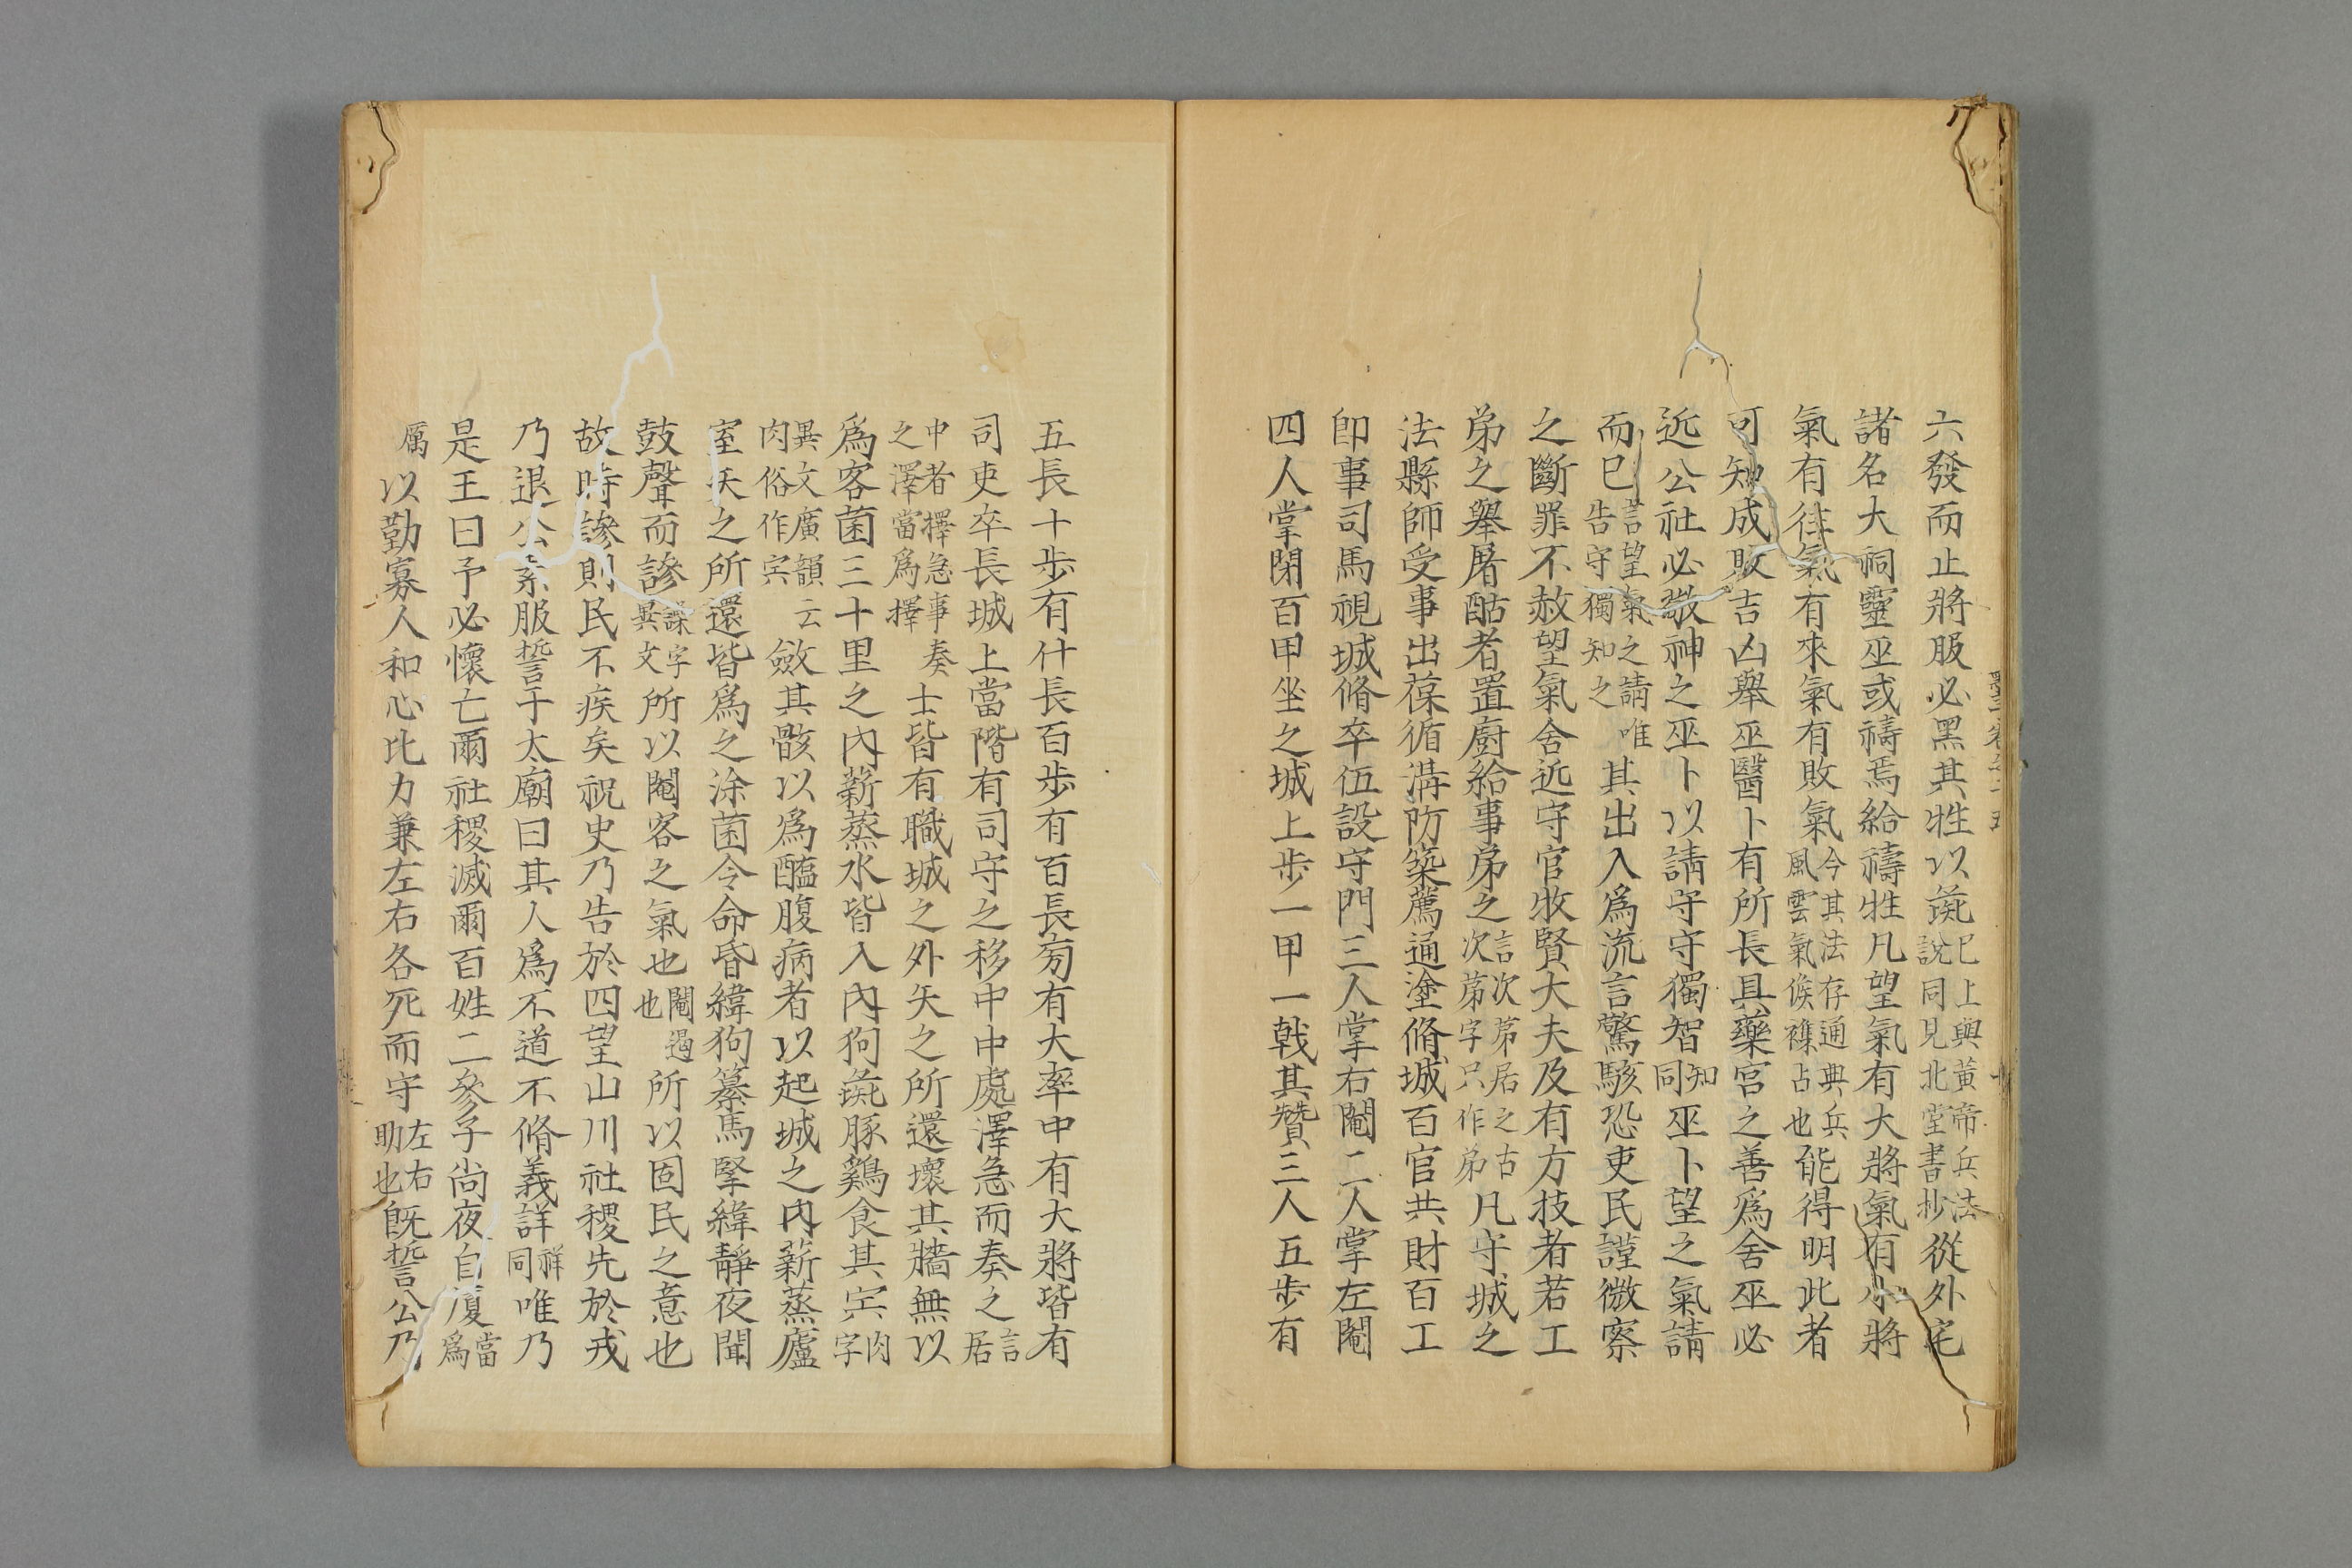 六發而止將服必黑其牲以彘已上與黃帝兵法說同見北堂書抄從外宅
諸名大祠靈巫或禱焉給禱牲凡望氣有大將氣有小將
氣有往氣有來氣有敗氣今其法存通典兵風雲氣候襍占也能得明此者
可知成敗吉凶舉巫醫卜有所長具藥宮之善爲舍巫必
近公社必敬神之巫卜以請守守獨智知同巫卜望之氣請
而已言望氣之請唯告守獨知之其出入爲流言驚駭恐吏民謹微察
之斷罪不赦望氣舍近守官牧賢大夫及有方技者若工
弟之舉屠酤者置廚給事弟之言次苐居之古次苐字只作弟凡守城之
法縣師受事出葆循溝防築薦通塗脩城百官共財百工
卽事司馬視城脩卒伍設守門三人掌右閹二人掌左閹
四人掌閉百甲坐之城上步一甲一戟其贊三人五步有
五長十步有什長百步有百長旁有大率中有大將皆有
司吏卒長城上當階有司守之移中中處澤急而奏之言居
中者擇急事奏之澤當爲擇士皆有職城之外矢之所還壞其牆無以
爲客菌三十里之內薪蒸水皆入內狗彘豚鷄食其宍肉字
異文廣韻云肉俗作宍斂其骸以爲醢腹病者以起城之內薪蒸廬
室矢之所還皆爲之涂菌令命昏緯狗纂馬掔緯靜夜聞
鼓聲而謲譟字異文所以閹客之氣也閹遏也所以固民之意也
故時謲則民不疾矣祝史乃告於四望山川社稷先於戎
乃退公素服誓于太廟曰其人爲不道不脩義詳祥同唯乃
是王曰予必懷亡爾社稷滅爾百姓二參子尚夜自廈當爲
厲以勤寡人和心比力兼左右各死而守左右助也旣誓公乃